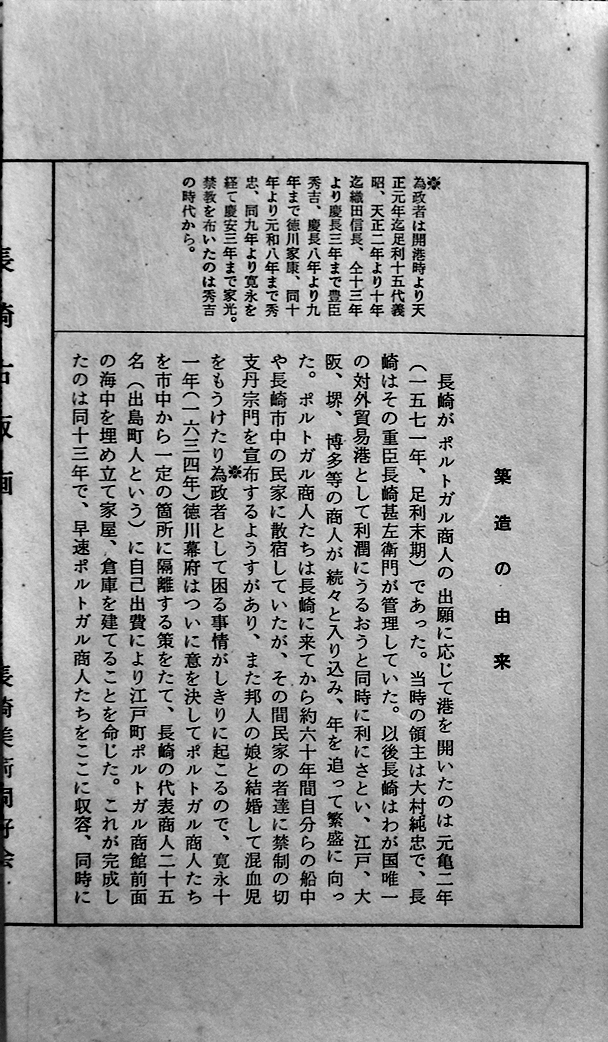 築造の由来
長崎がポルトガル商人の出願に応じて港を開いたのは元亀二年
（一五七一年、足利末期）であった。当時の領主は大村純忠で、長
崎はその重臣長崎甚左衛門が管理していた。以後長崎はわが国唯一
の対外貿易港として利潤にうるおうと同時に利にさとい、江戸、大
阪、堺、博多等の商人が続々と入り込み、年を追って繁盛に向っ
た。ポルトガル商人たちは長崎に来てから約六十年間自分らの船中
や長崎市中の民家に散宿していたが、その間民家の者達に禁制の切
支丹宗門を宣布するようすがあり、また邦人の娘と結婚して混血児
をもうけたり※為政者として困る事情がしきりに起こるので、寛永十
一年（一六三四年）徳川幕府はついに意を決してポルトガル商人たち
を市中から一定の箇所に隔離する策をたて、長崎の代表商人二十五
名（出島町人という）に自己出費により江戸町ポルトガル商館前面
の海中を埋め立て家屋、倉庫を建てることを命じた。これが完成し
たのは同十三年で、早速ポルトガル商人たちをここに収容、同時に
※
為政者は開港時より天
正元年迄足利十五代義
昭、天正二年より十年
迄織田信長、仝十三年
より慶長三年まで豊臣
秀吉、慶長八年より九
年まで徳川家康、同十
年より元和八年まで秀
忠、同九年より寛永を
経て慶安三年まで家光。
禁教を布いたのは秀吉
の時代から。
長崎古版画
長崎美術同好会